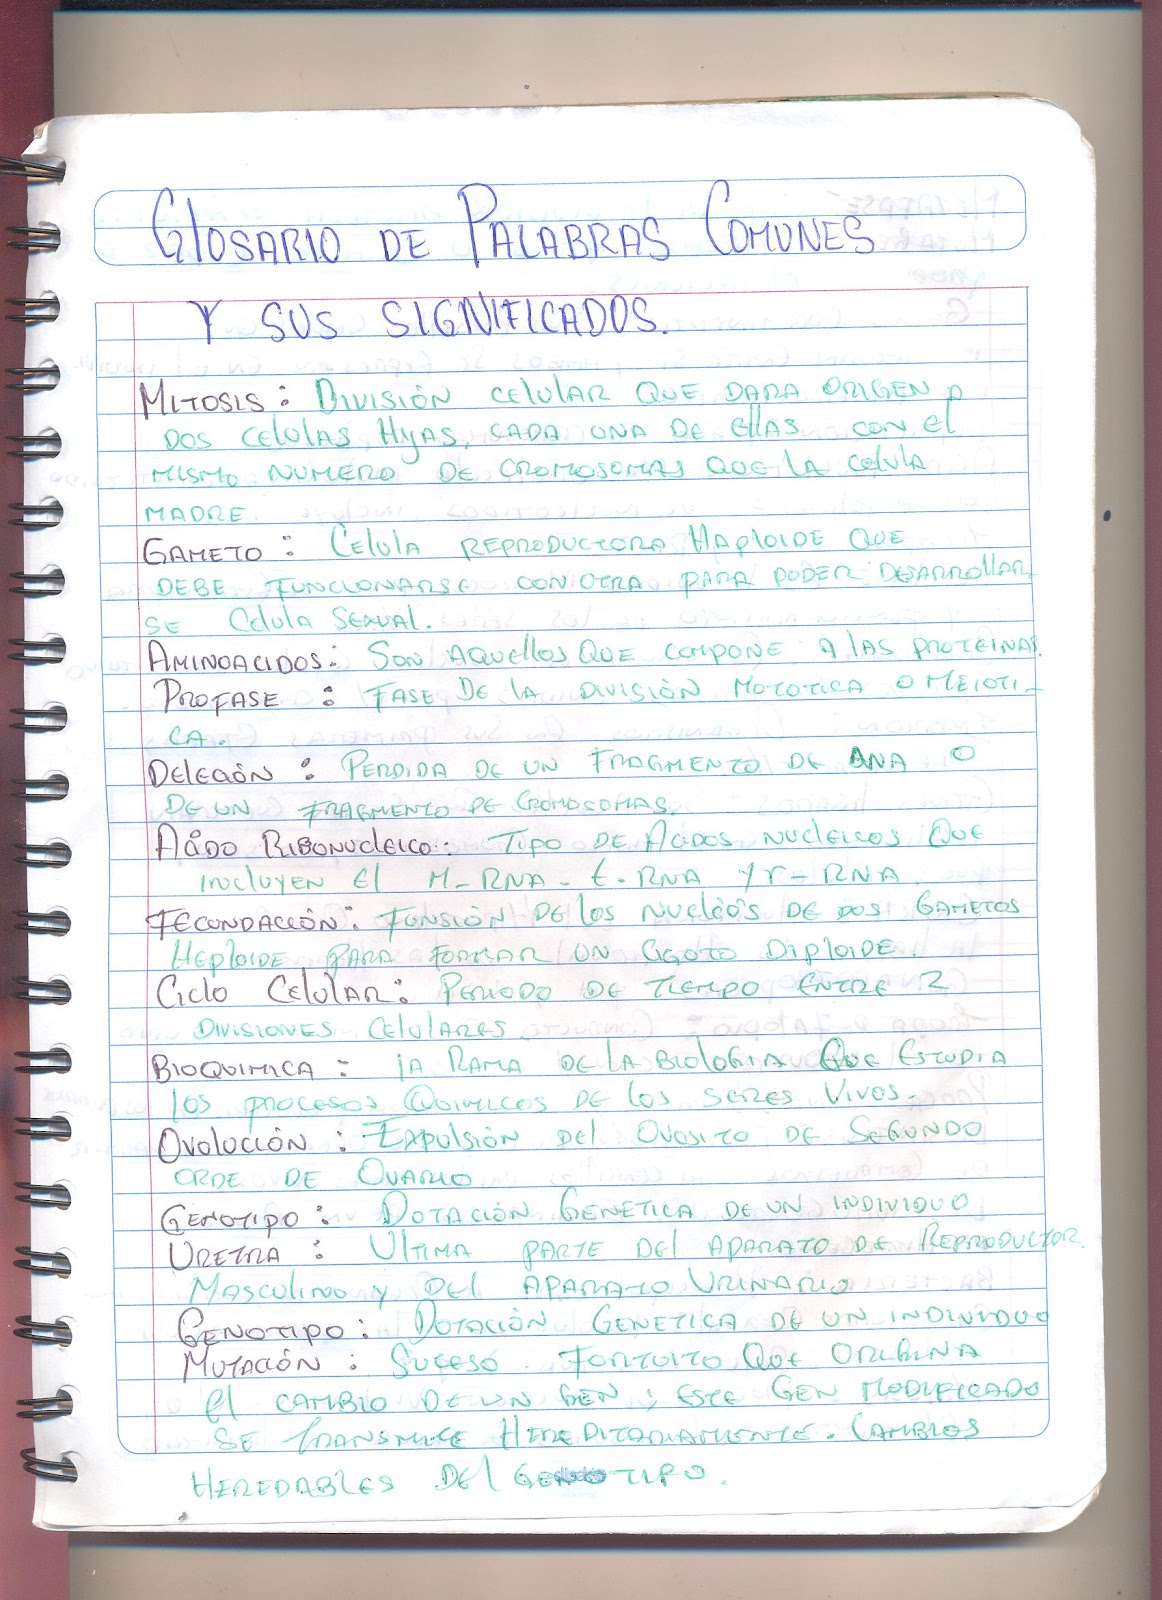 Glosario de Palabras Comunes
y sus significados.
Mitosis: División celular que dara origen a
dos celulas Hijas, cada una de ellas con el
mismo numero de cromosomas que la celula
madre.
Gameto: Celula reproductora Haploide que
debe funcionarse con otra para poder desarrollar
se Celula sexual.
Aminoacidos: Son aquellos que compone a las proteinas.
Profase: Fase de la división mototica o meioti-
ca.
Deleción: Perdida de un fragmento de DNA o
de un fragmento de cromosomas.
Acido Ribonucleico: Tipo de Acidos nucleicos que
incluyen el M-RNA - t-RNA y r-RNA.
Fecondacción: Funsión de los nucleós de dos gametos
Heploide para formar un cigoto Diploide.
Ciclo Celular: Periodo de tiempo entre 2
divisiones celulares.
Bioquimica: la Rama de la biologia que estudia
los procesos Quimicos de los seres vivos.
Ovolución: Expulsión del ovosito de segundo
orde de ovario
Genotipo: Dotación Genetica de un individuo
Uretra: Ultima parte del aparato de reproductor
Masculino y del aparato urinario
Genotipo: Dotación genetica de un individuo
Mutación: Suceso fortuito que origina
el cambio de un gen; este gen modificado
se transmite Hereditariamente. Cambios
Heredables del genotipo.